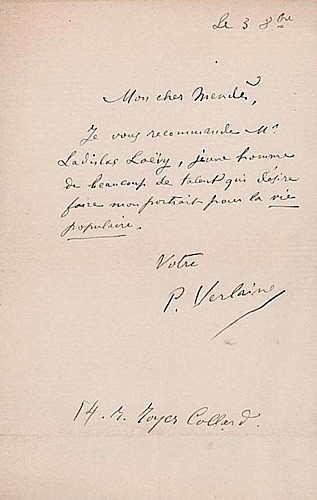 Le 3 8bre
Mon cher Mendès,
Je vous recommande Mr
Ladislas Loëvy, jeune homme
de beaucoup de talent qui désire
faire mon portrait pour la vie
populaire.
Votre
P. Verlaine
14. r. Royer Collard.